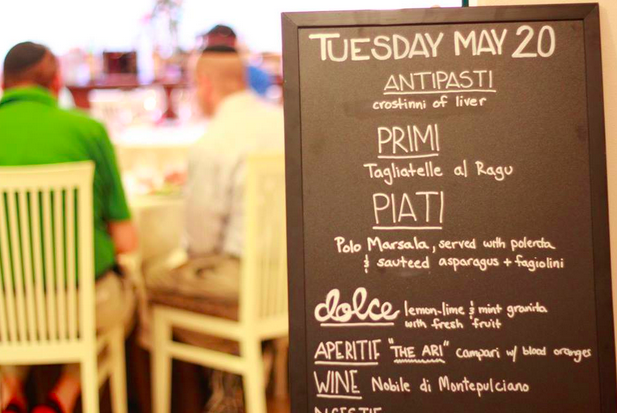 TUESDAY MAY 20
ANTIPASTI
crostinni of liver
PRIMI
Tagliatelle al Ragu
PIATI
Polo Marsala, served with polenta
& sauteed asparagus + fagiolini
dolce lemon-lime & mint granita
with fresh fruit
APERITIF "THE ARI" Campari w/ blood oranges
WINE Nobile di Montepulciano